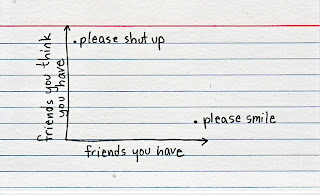 . please shut up
friends you think
you have
. please smile
friends you have